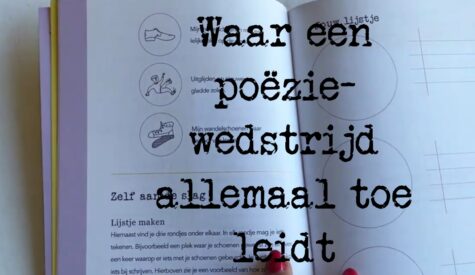 Waar een
poëzie-
wedstrijd
allemaal toe
leidt
jouw lijstje
Mij
Uitglijden
gladde zol
Mijn wandelschoenen
Zelf aan de slag
Lijstje maken
Hiernaast vind je drie rondjes onder elkaar. In el mag je iets
tekenen. Bijvoorbeeld een plek waar je schoenen
een keer waarop er iets met je schoenen gebeur
iets bij schrijven. Hierboven zie je een voorbeeld van hoe